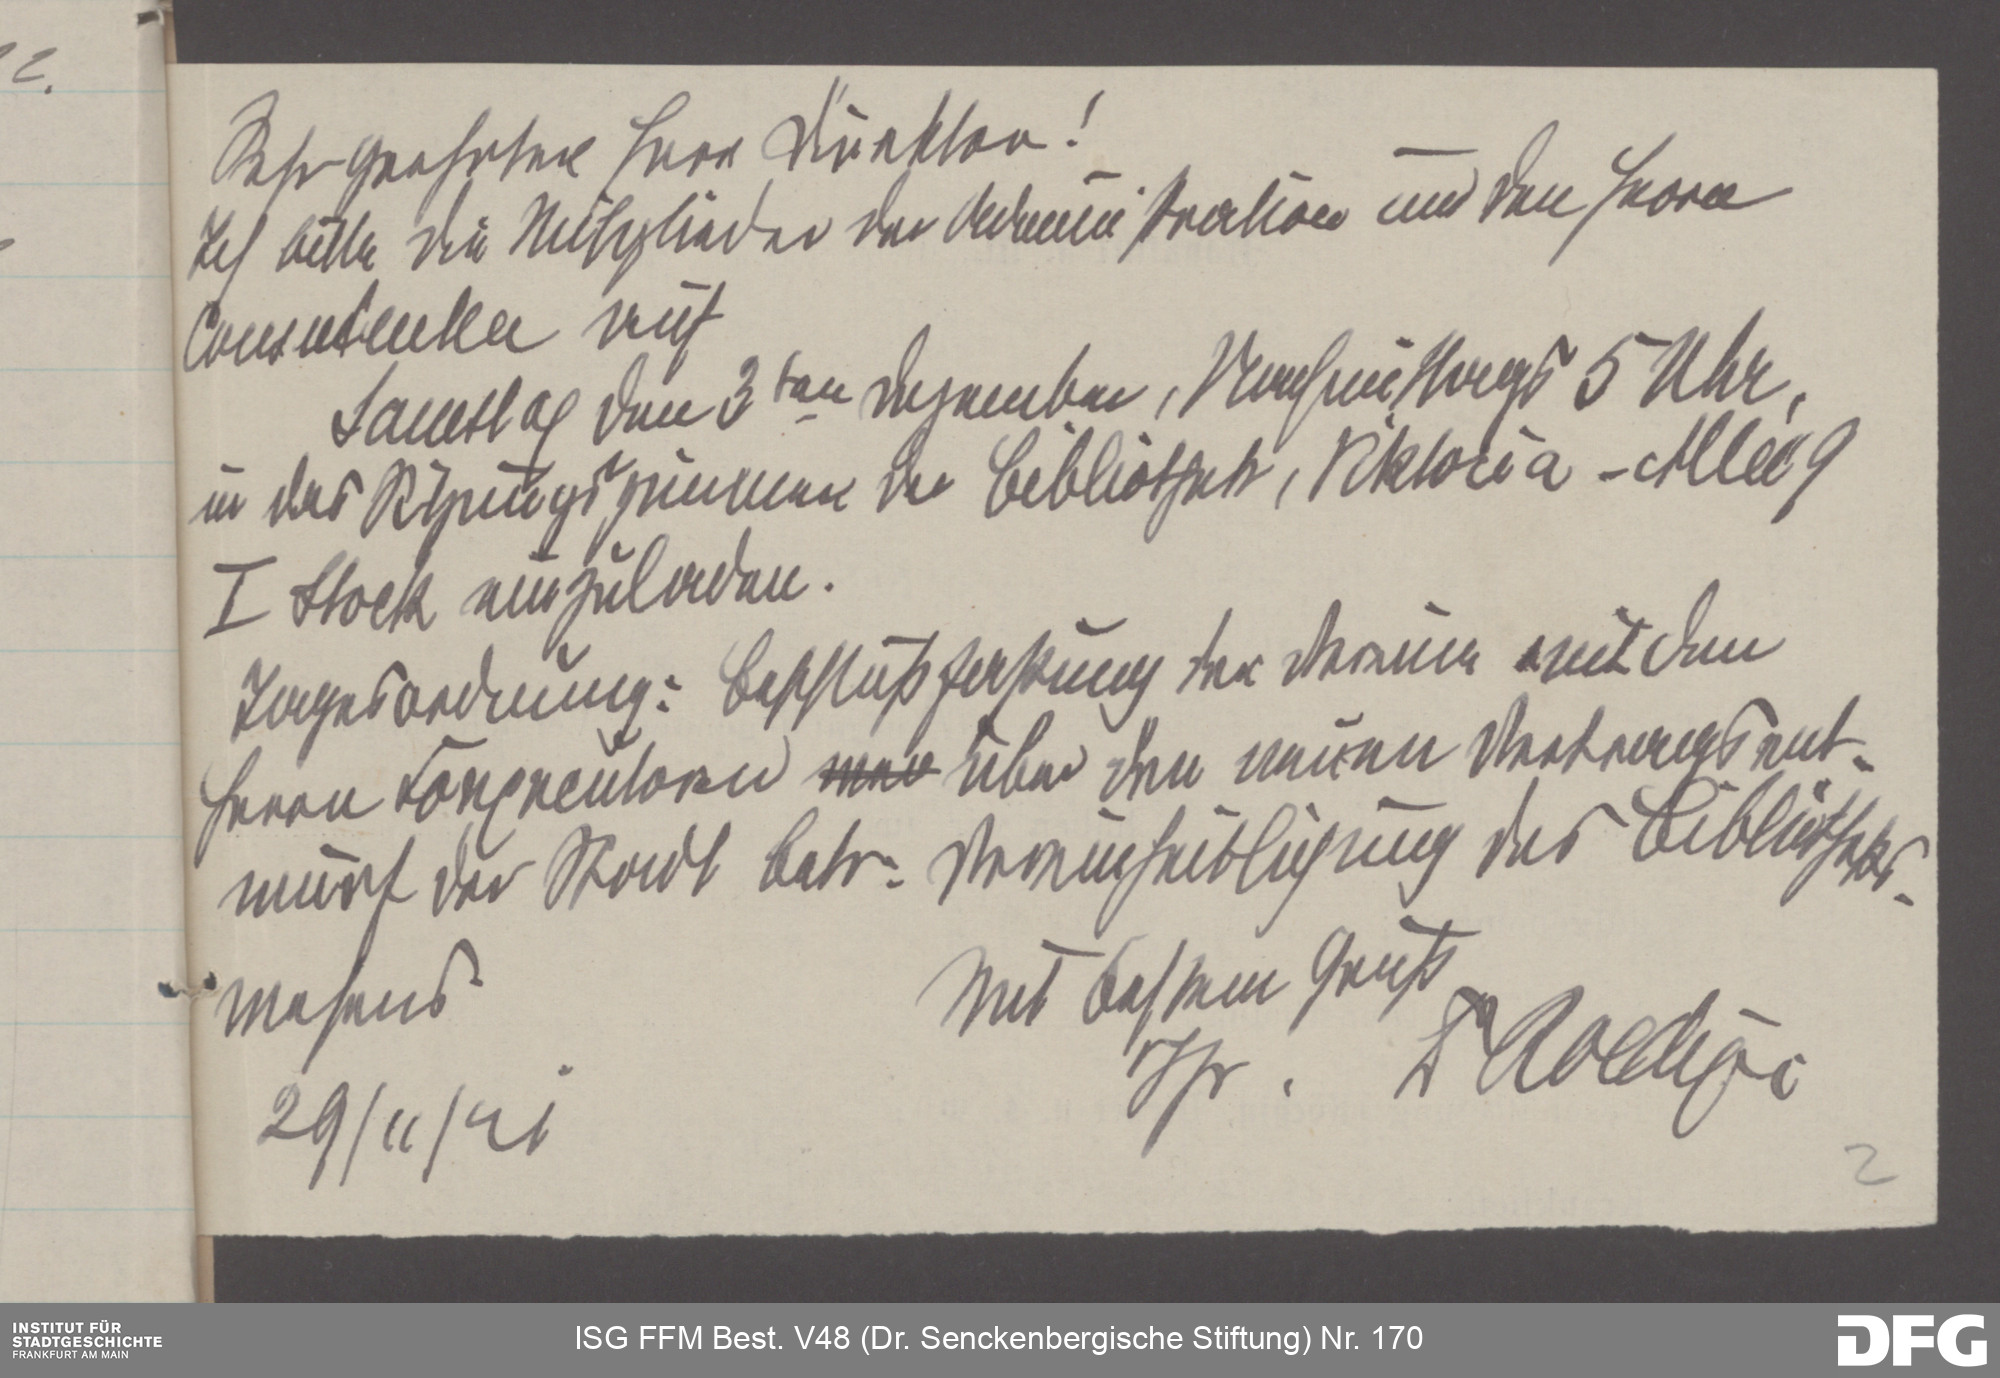 Sehr geehrter Herr Direktor!
Ich bitte die Mitglieder der Administration und den Herrn
Consulenten auf
Samstag den 3ten Dezember, Nachmittags 5 Uhr,
in das Sitzungszimmer der Bibliothek, Viktoria-Allee 9
I Stock einzuladen.
Tagesordnung: Beschlußfassung der Vereine mit den
Herrn über den neuen Vertragsent-
wurf der Stadt betr. Vereinheitlichung des Bibliotheks-
wesens
Mit bestem Gruß
Ihr. Dr Roediger
29/11/21
2
INSTITUT FÜR
STADTGESCHICHTE
FRANKFURT AM MAIN
ISG FFM Best. V48 (Dr. Senckenbergische Stiftung) Nr. 170
DFG